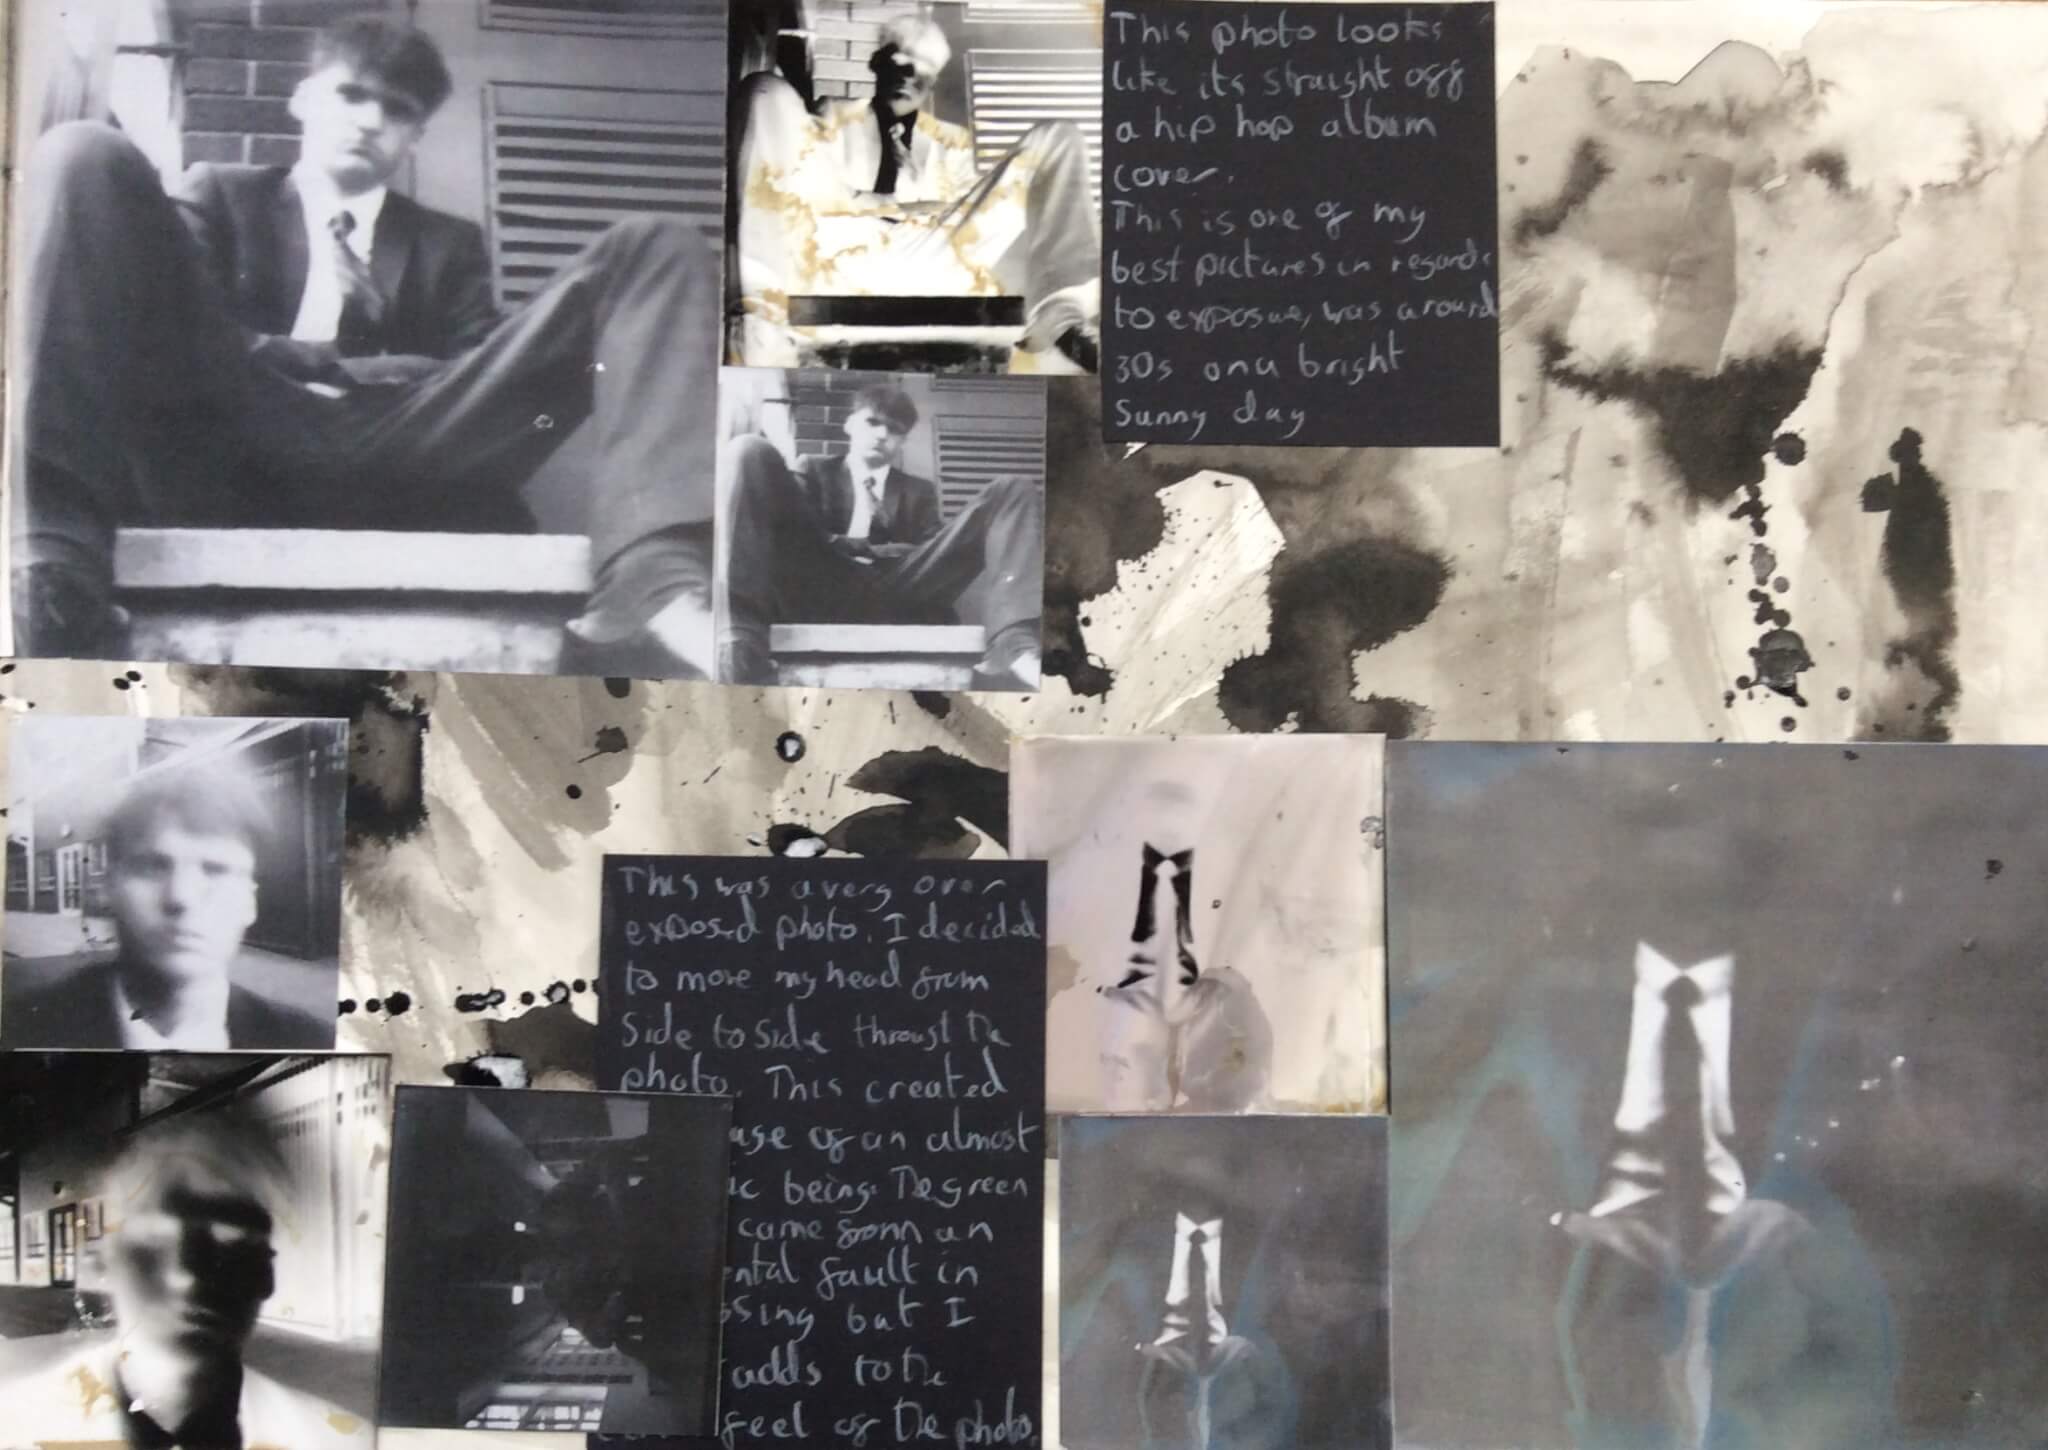 This photo looks
like its straight off
a hip hop album
cover.
This is one of my
best pictures in regards
to exposue, was around
30s on a bright
Sunny day
This was a very over
exposed photo. I decided
to move my head from
Side to Side throust the
photo. This created
of an almost
being. The green
came from an
fault in
but I
adds to the
feel of the photo.